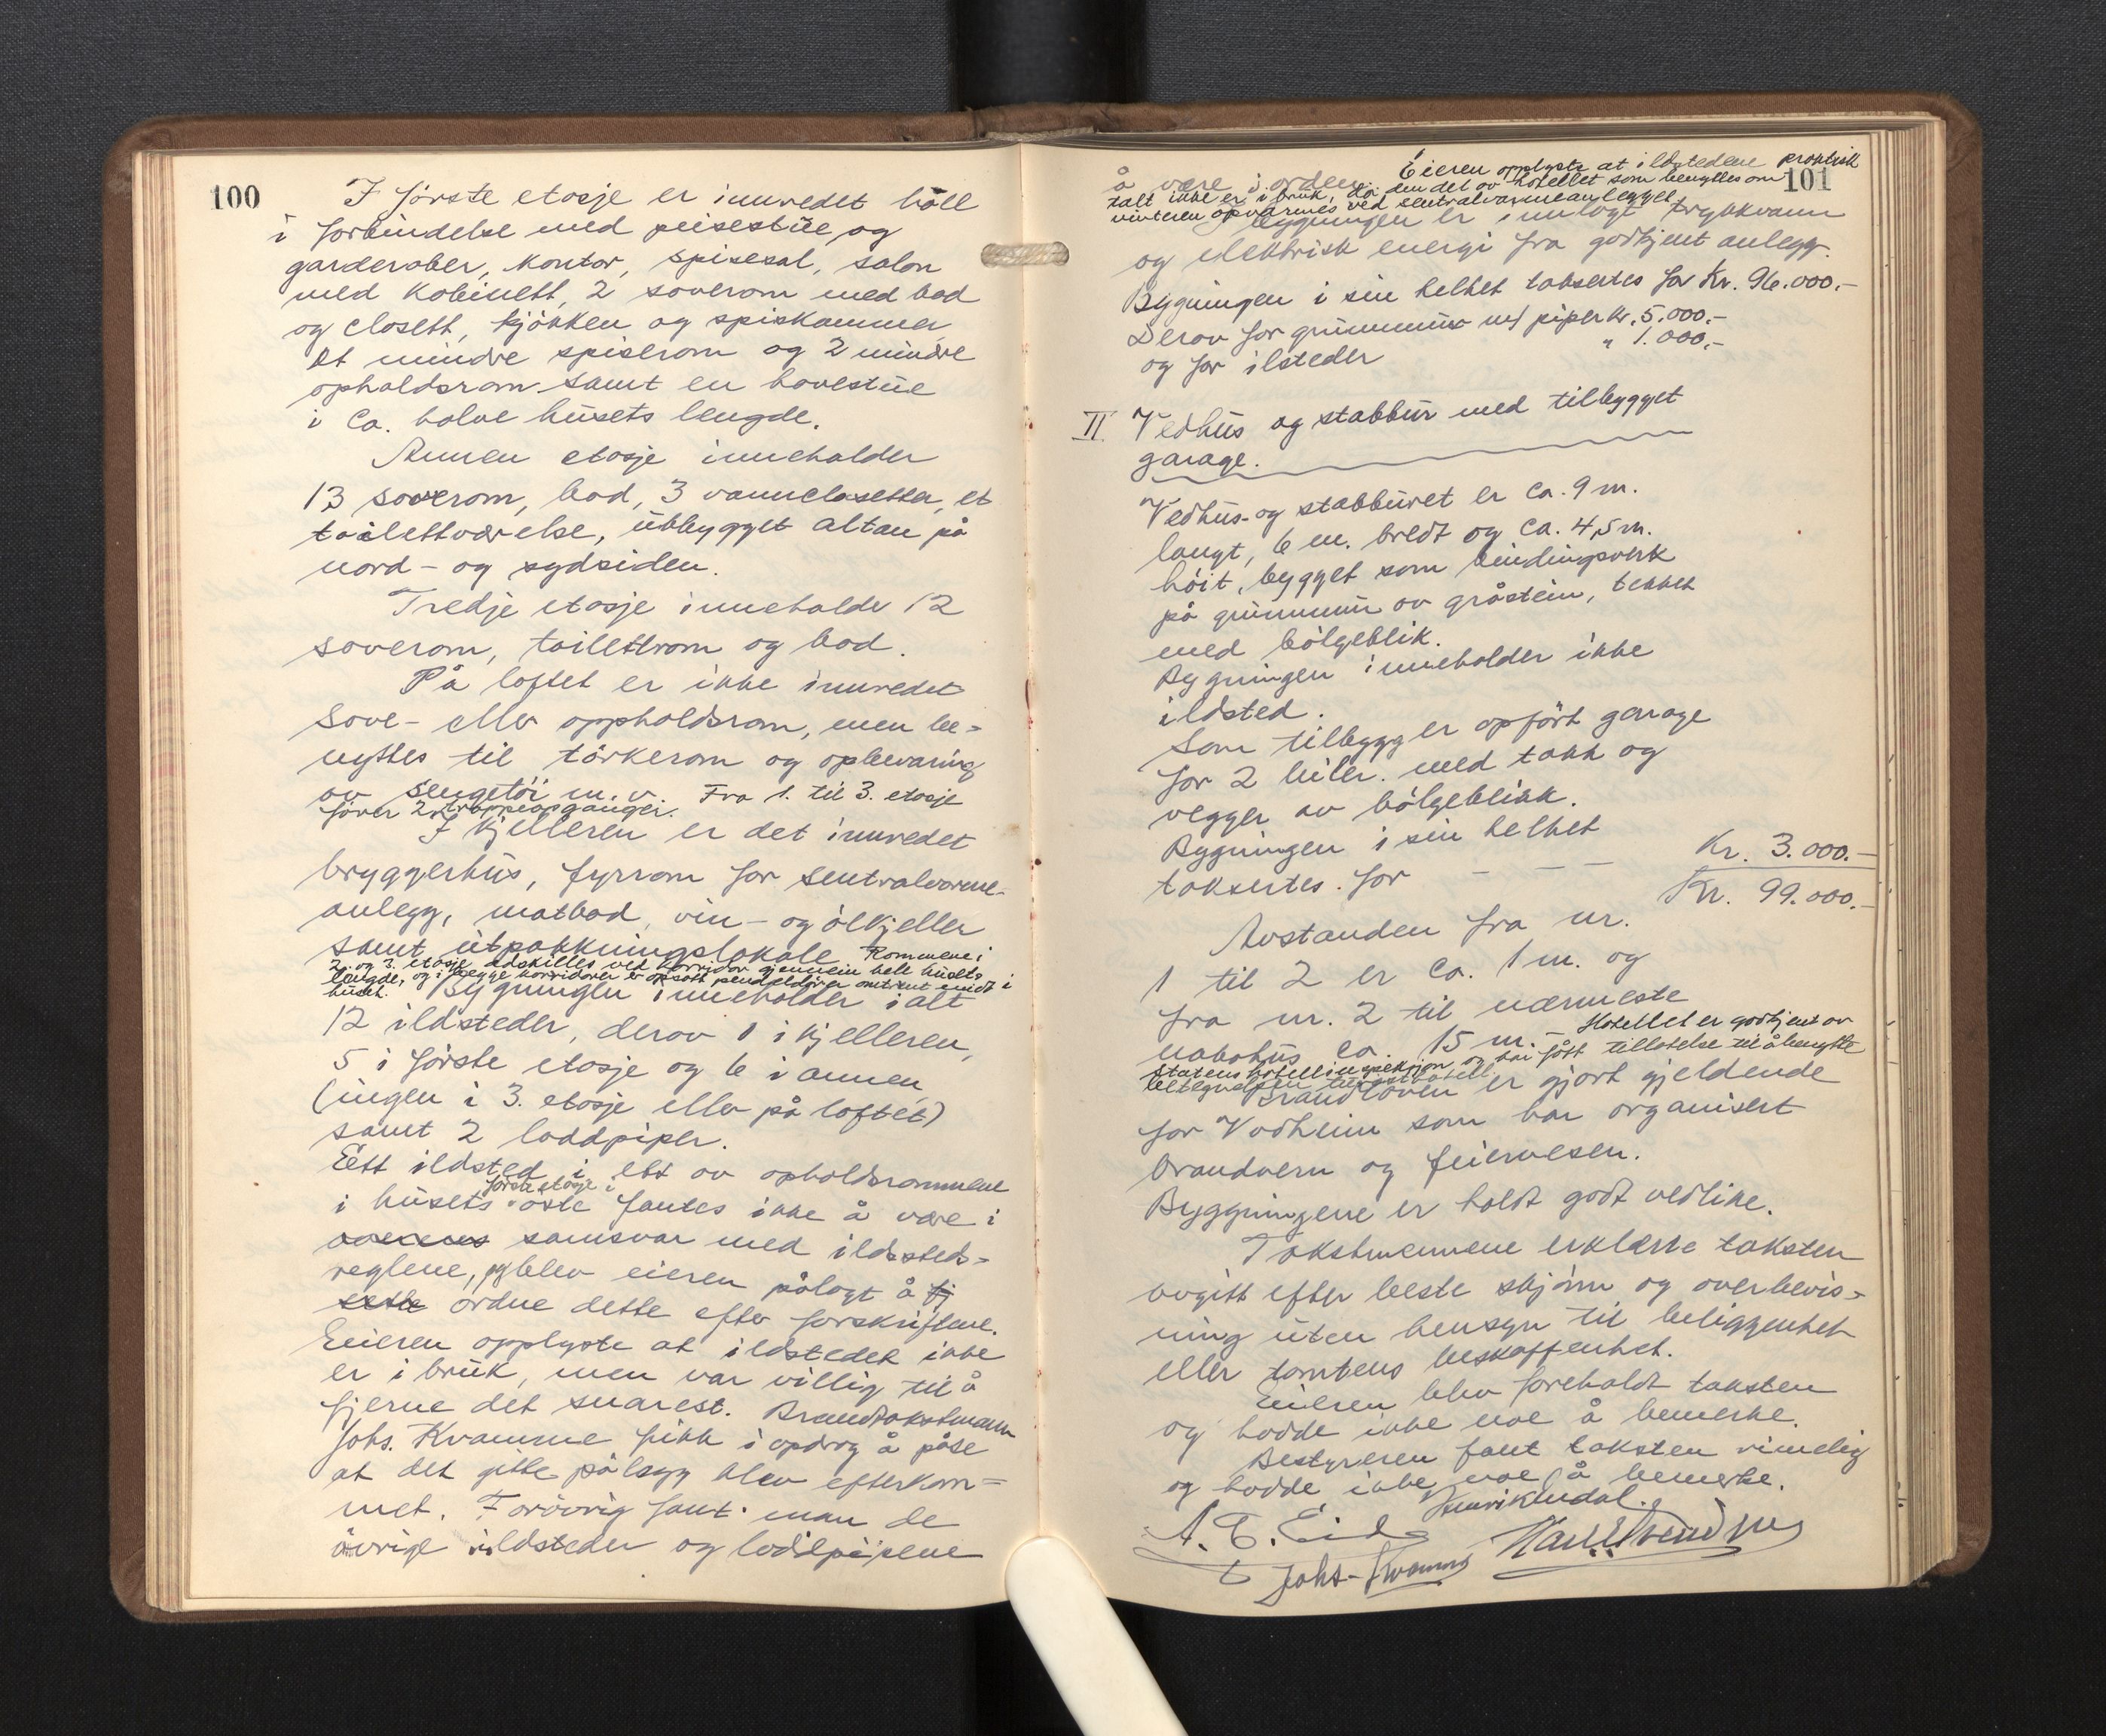 100
I första etasje er innredet håll
i forbindelse med peisestue og
garderober, kontor, spisesal, salon
med kabinett, 2 soverom med bad
og closett, kjökken og spiskammer,
et mindre spiserom og 2 mindre
opholdsrom samt en havestue
i ca. halve husets lengde.
Annen etasje inneholder
13 soverom, bad, 3 vannclosetter, et
toilettværelse, utbygget altan på
nord- og sydsiden.
Tredje etasje inneholder 12
soverom, toilettrom og bad.
På loftet er ikke innredet
sove- eller oppholdsrom, men be-
nyttes til törkerom og opbevaring
av sengetöi m.v. Fra 1. til 3. etasje
förer 2 trappeopganger.
I kjelleren er det innredet
bryggerhus, fyrrom for sentralvarme-
anlegg, matbod, vin- og ölkjeller
samt utpakkningslokale. Rommene i
2. og 3. etasje adskilles ved korridor gjennem hele husets
lengde, og i begge korridorer er opsatt pendeldörer omtrent midt i
huset. Bygningen inneholder ialt
12 ildsteder, derav 1 i kjelleren,
5 i förste etasje og 6 i annen,
(ingen i 3. etasje eller på loftet)
samt 2 loddpiper.
Ett ildsted i ett av opholdsrommene
förste etasje i
i husets öste fantes ikke å være i
overens samsvar med ildsteds-
reglene, og blev eieren pålagt å fj
sette ordne dette efter forskriftene.
Eieren opplyste at ildstedet ikke
er i bruk, men var villig til å
fjerne det snarest. Brandtakstmann
Johs. Kvamme fikk i opdrag å påse
at det gitte pålegg blev efterkom-
met. Forövrig fant man de
övrige ildsteder og loddpipene
101
Eieren opplyste at ildstedene praktisk
å være i orden.
talt ikke er i bruk, da den del av hotellet som benyttes om
vinteren opvarmes ved sentralvarmeanlegget.
I bygningen er innlagt trykkvann
og elektrisk energi fra godkjent anlegg.
Bygningen i sin helhet taksertes for Kr. 96.000.-
Derav for grunnmur m/ piper kr. 5.000.-
og for ilsteder " 1.000.-
II. Vedhus og stabbur med tilbygget
garage.
Vedhus- og stabburet er ca. 9 m.
langt, 6 m. bredt og ca. 4,5 m.
höit, bygget som bindingsverk
på grunnmur av gråstein, tekket
med bölgeblik.
Bygningen inneholder ikke
ildsted.
Som tilbygg er opfört garage
for 2 biler. med takk og
vegger av bölgeblikk.
Bygningen i sin helhet
taksertes. for - - - Kr. 3.000.-
Kr. 99.000.-
Avstanden fra nr.
1 til 2 er ca. 1 m. og
fra nr. 2 til nærmeste
nabohus ca. 15 m. - Hotellet er godkjent av
Statens hotellinspeksjon og har fått tillatelse til å benytte
betegnelsen turisthotell.
Brandloven er gjort gjeldende
for Vadheim som har organisert
brandvern og feiervesen.
Byggningene er holdt godt vedlike.
Takstmennene erklærte taksten
avgitt efter beste skjönn og overbevis-
ning uten hensyn til beliggenhet
eller tomtens beskaffenhet.
Eieren blev foreholdt taksten
og hadde ikke noe å bemerke.
Bestyreren fant taksten rimelig
og hadde ikke noe å bemerke.
A. E. Eide
Johs. Kvamme